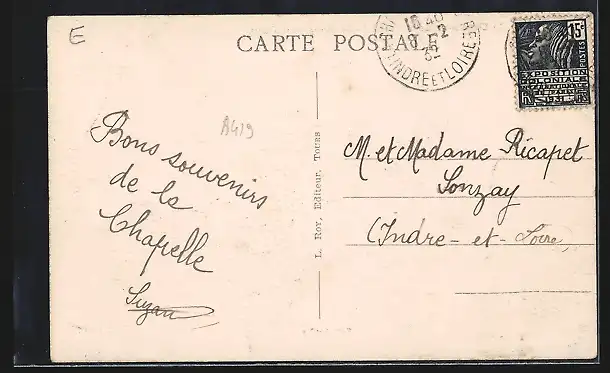 E
CARTE POSTALE
10 40
8 - 2
32
INDRE ET LOIRE
15c
POSTES
EXPOSITION
COLONIALE
INTERNATIONALE
PARIS
1931
A419
Bons souvenirs
de la
Chapelle
Suzan
L. Roy, Editeur, Tours
M. et Madame Ricapet
Sonzay
(Indre-et-Loire)